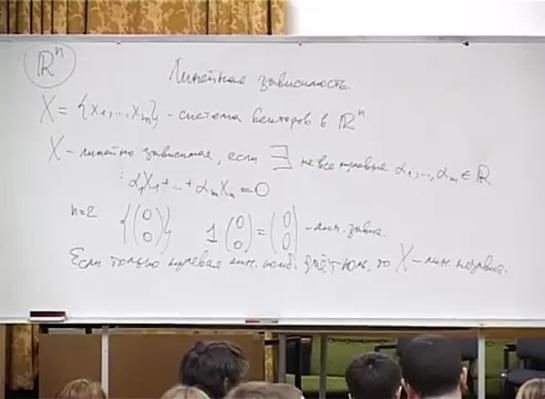 ℝⁿ
Линейная зависимость.
X = {x₁, ..., xₘ} - система векторов в ℝⁿ
X - линейно зависимая, если ∃ не все нулевые α₁, ..., αₘ ∈ ℝ
: α₁x₁ + ... + αₘxₘ = 0
n=2 {(0 0)} 1 (0 0) = (0 0) - лин. завис.
Если только нулевая лин. комб. даёт ноль, то X - лин. независ.